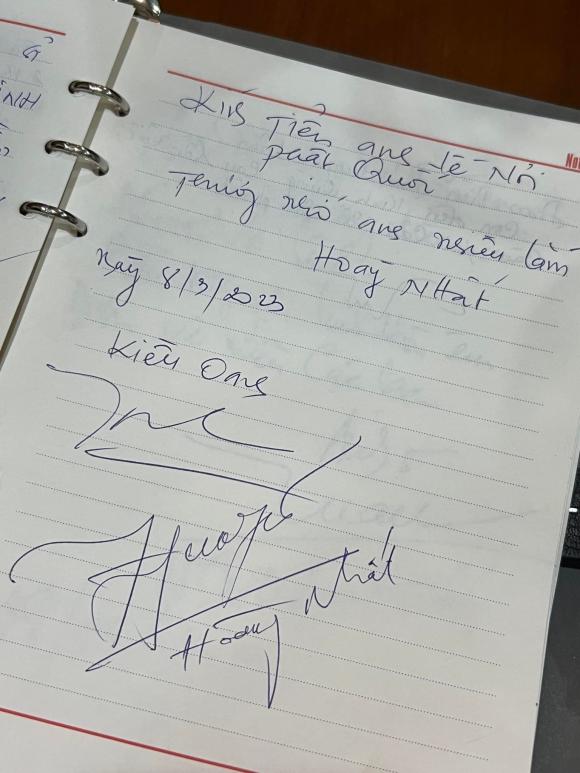 Kính Tiễn anh Về Nơi
Phật Quốc
Thương nhớ anh nhiều lắm
Hoàng Nhất
Ngày 8/3/2023
Kiều Oanh
Hoàng Nhất
No
NH